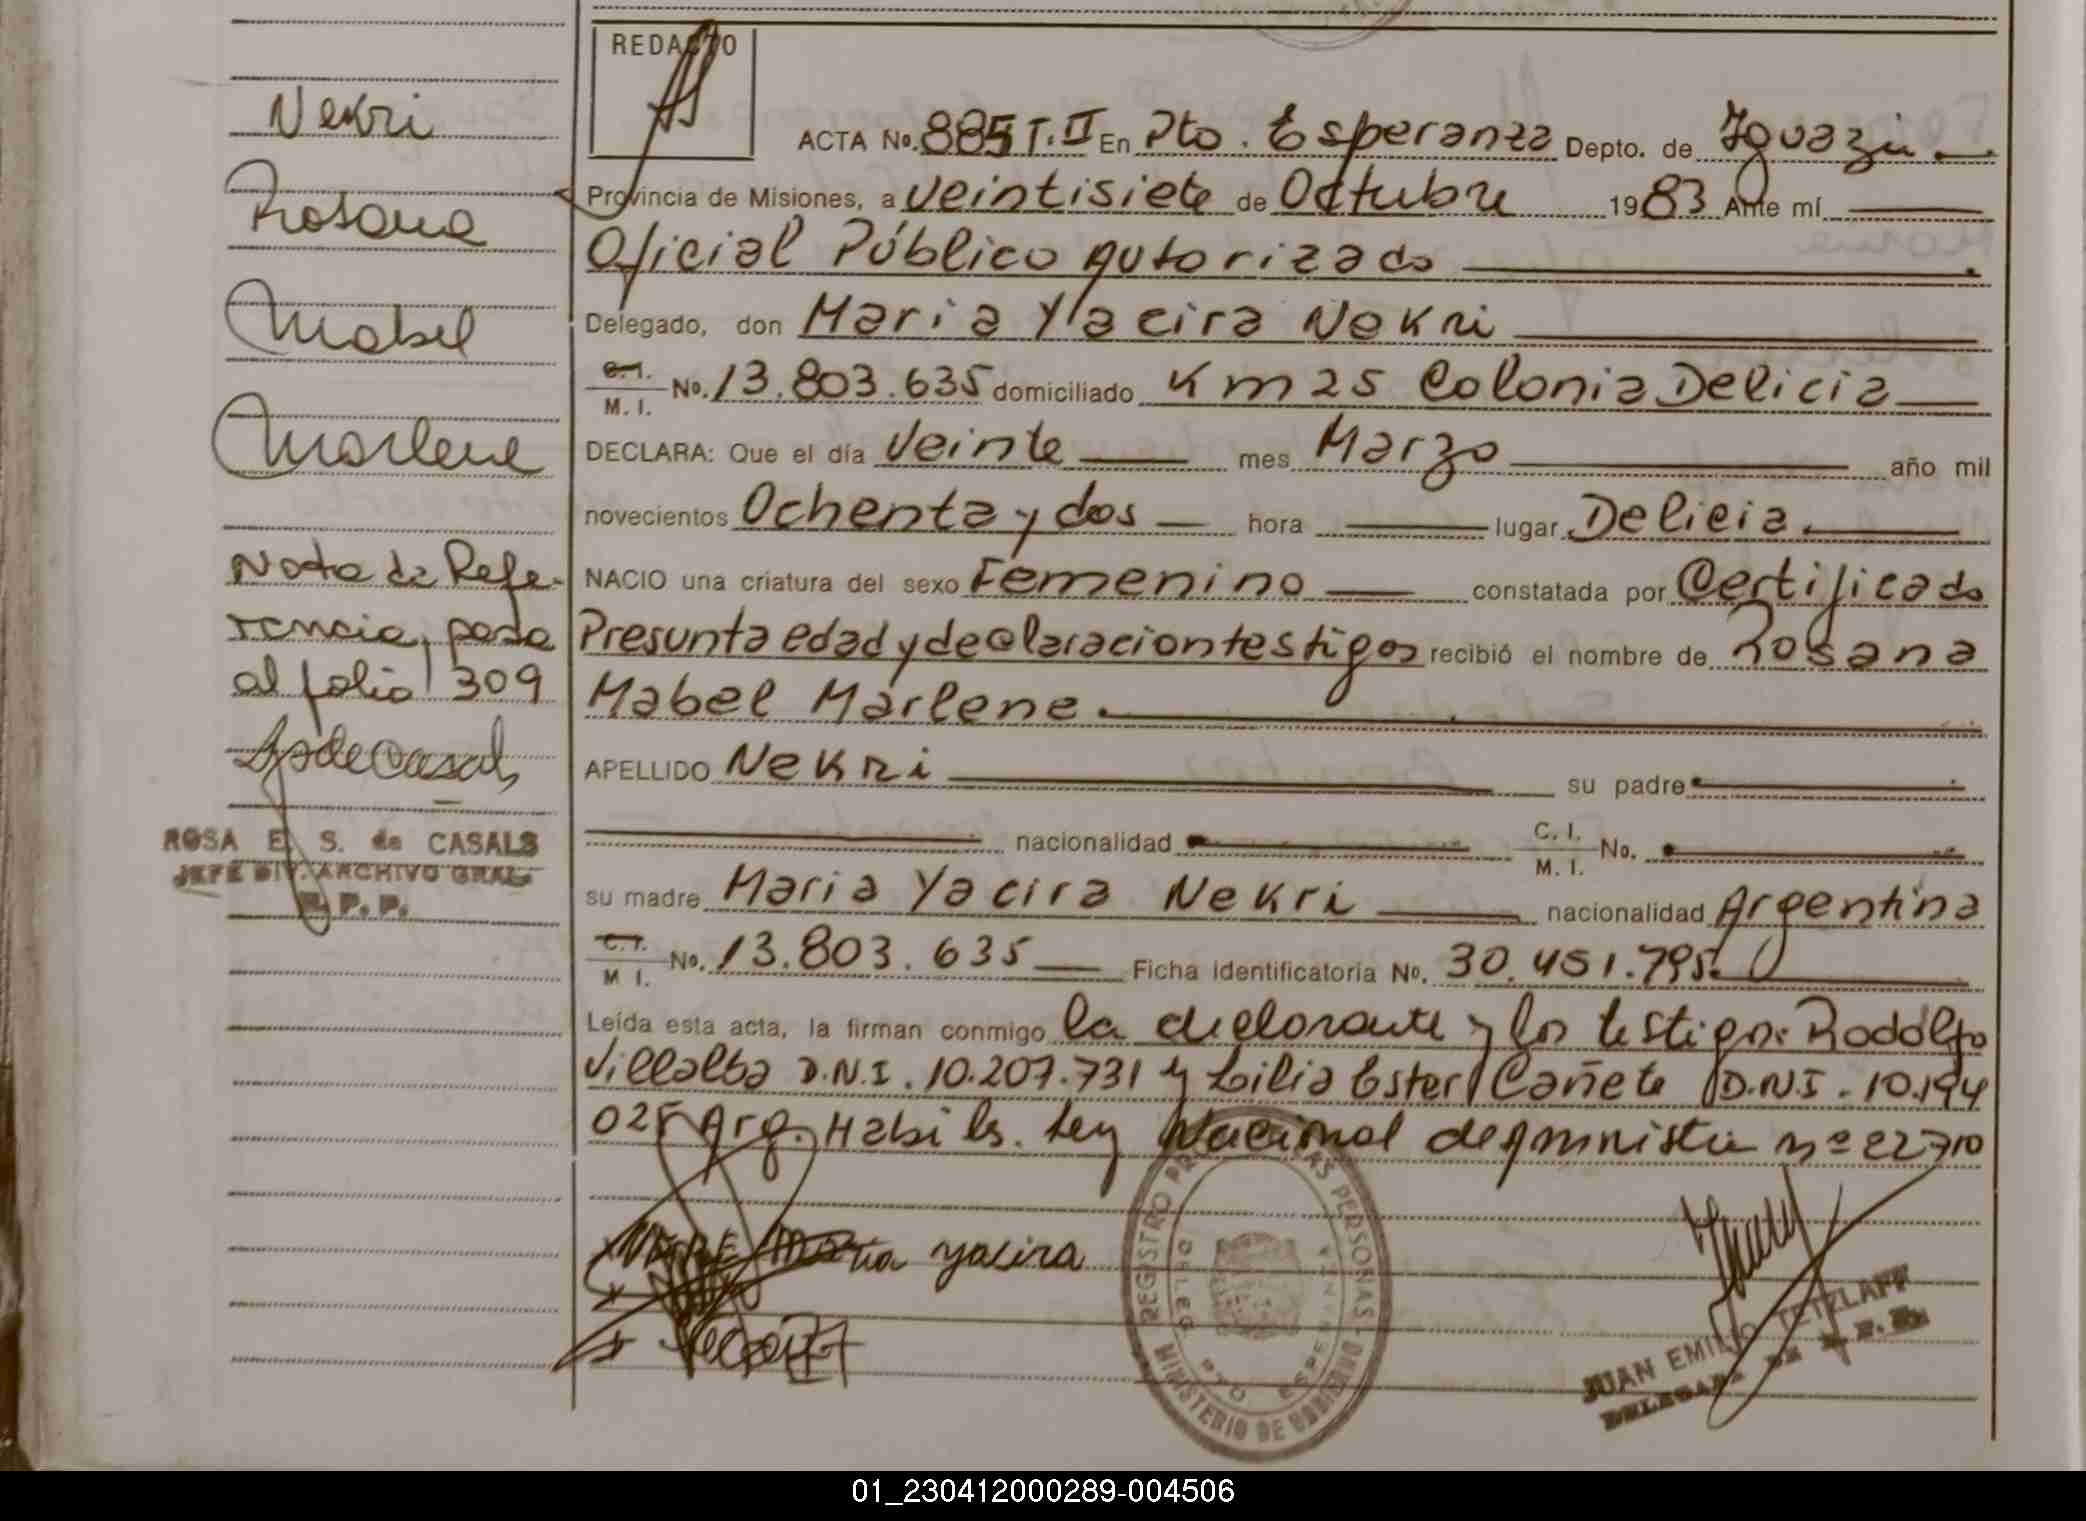 Nekri
Rosana
Mabel
Marlene
Nota de Refe-
rencia, pasa
al folio 309
ROSA E. S. de CASALS
JEFE DIV. ARCHIVO GRAL.
R. P. P.
REDACTO
ACTA No. 885 T. II En Pto. Esperanza Depto. de Iguazú
Provincia de Misiones, a veintisiete de Octubre 1983 Ante mí
Oficial Público Autorizado
Delegado, don Maria Yacira Nekri
C.I. M. I. No. 13.803.635 domiciliado Km 25 Colonia Delicia
DECLARA: Que el día Veinte mes Marzo año mil
novecientos Ochenta y dos hora lugar Delicia.
NACIO una criatura del sexo Femenino constatada por Certificado
Presunta edad y declaracion testigos recibió el nombre de Rosana
Mabel Marlene.
APELLIDO Nekri su padre
nacionalidad C. I. M. I. No.
su madre Maria Yacira Nekri nacionalidad Argentina
C. I. M I. No. 13.803.635 Ficha identificatoria No. 30.451.795.
Leída esta acta, la firman conmigo la declarante y los testigos: Rodolfo
Villalba D.N.I. 10.207.731 y Lilia Ester Cañete D.N.I. 10.194
025 Arg. Habiles. Ley Nacional de Amnistia nº 22710
Maria yacira
REGISTRO PROV. DE LAS PERSONAS
DELEG. PTO. ESPERANZA
MINISTERIO DE GOBIERNO
JUAN EMILIO TETZLAFF
DELEGADO DE R. P. P.
01_230412000289-004506